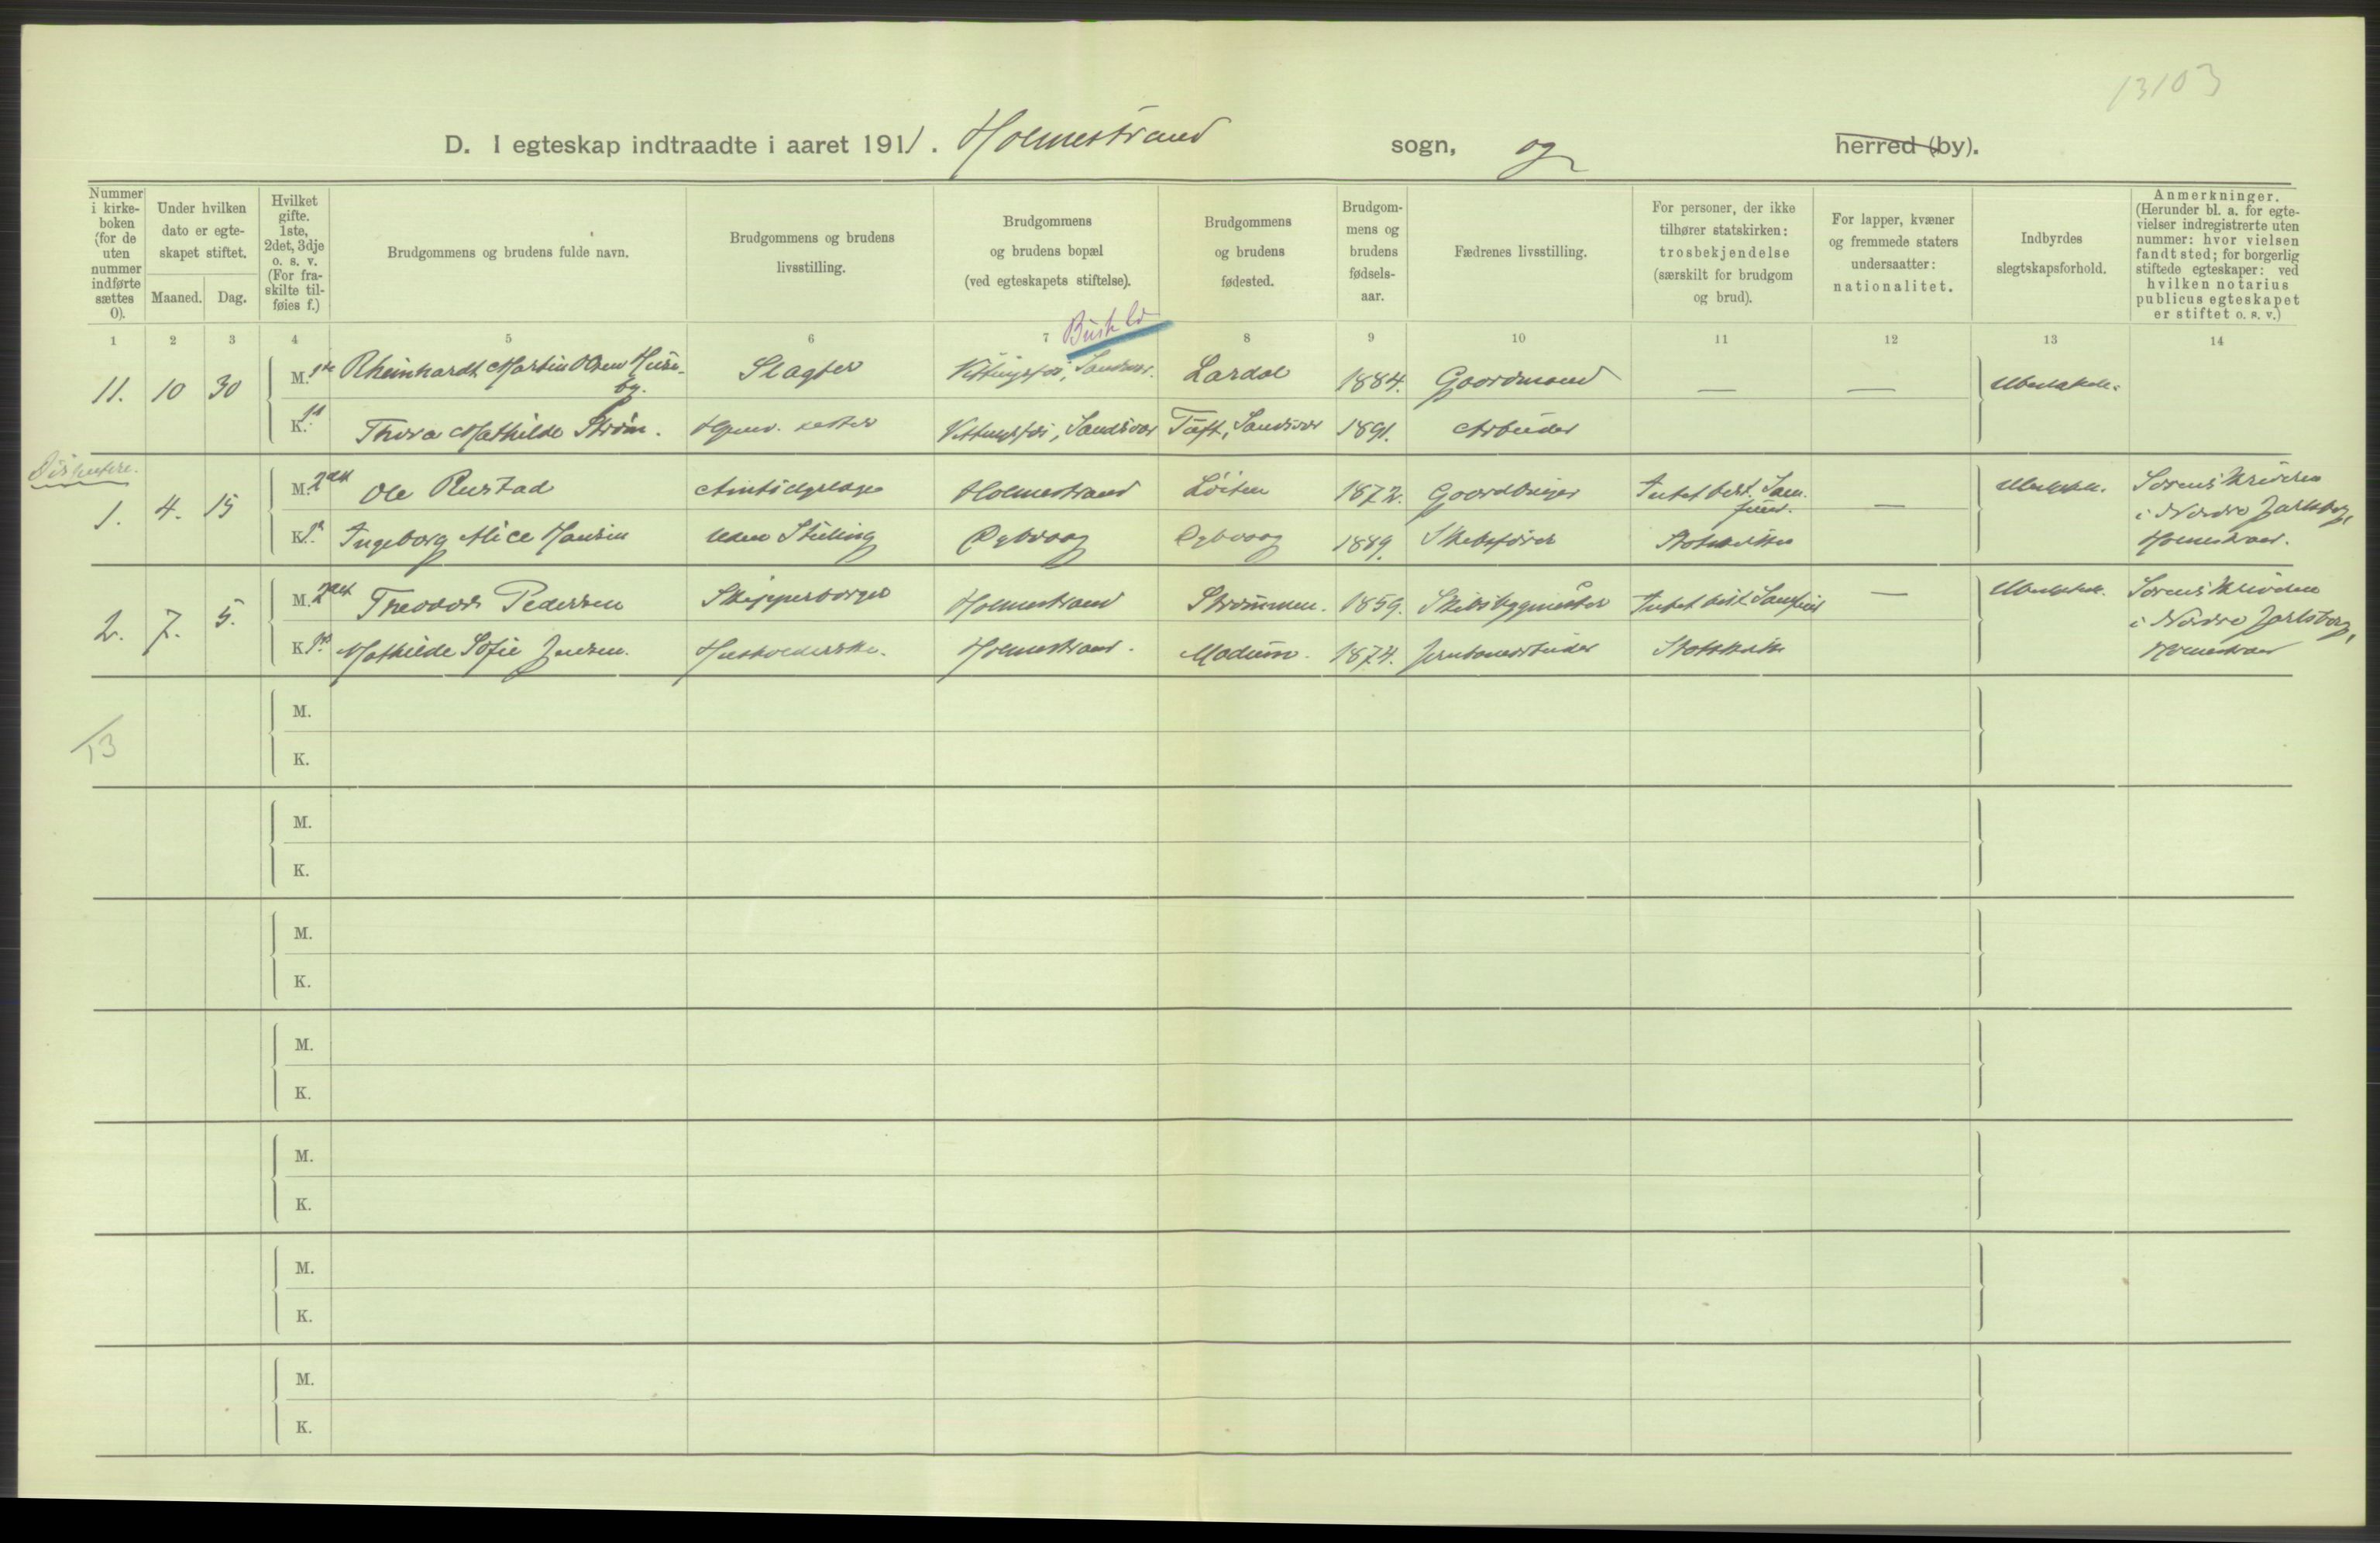 13103
D. I egteskap indtraadte i aaret 1911. Holmestrand sogn, og herred (by).
Nummer i kirke- boken (for de uten nummer indførte sættes 0).
Under hvilken dato er egte- skapet stiftet.
Maaned. Dag.
Hvilket gifte. 1ste, 2det, 3dje o. s. v. (For fra- skilte til- føies f.)
Brudgommens og brudens fulde navn.
Brudgommens og brudens livsstilling.
Brudgommens og brudens bopæl (ved egteskapets stiftelse).
Brudgommens og brudens fødested.
Brudgom- mens og brudens fødsels- aar.
Fædrenes livsstilling.
For personer, der ikke tilhører statskirken: trosbekjendelse (særskilt for brudgom og brud).
For lapper, kvæner og fremmede staters undersaatter: nationalitet.
Indbyrdes slegtskapsforhold.
Anmerkninger. (Herunder bl. a. for egte- vielser indregistrerte uten nummer: hvor vielsen fandt sted; for borgerlig stiftede egteskaper: ved hvilken notarius publicus egteskapet er stiftet o. s. v.)
1 2 3 4 5 6 7 8 9 10 11 12 13 14
11. 10 30 M. 1ste Rheinhardt Martin Olsen Huse- Slagter Vittingfos, Sandsvær. Lardal 1884. Gaardmand — — Ubeslektede.
by.
K. 1st Thora Mathilde Strøm. Vittingfos, Sandsvær Tuft, Sandsvær 1891. Arbeider
Dissentere.
1. 4. 15 M. 2det Ole Rustad Amtsdyrlæge Holmestrand Løiten 1872. Gaardbruger Intet best. Sam- — Ubeslektede. Sorenskriveren
fund. i Nordre Jarlsberg,
K. 1st Ingeborg Alice Hansen Uden Stilling Dybvaag Dybvaag 1889. Skibsfører Statskirken Holmestrand.
2. 7. 5. M. 2det Theodor Pedersen Skipperborger Holmestrand Strømmen. 1859. Skibsbygmester Intet best. Samfund — Ubeslektede. Sorenskriveren
i Nordre Jarlsberg,
K. 1st Mathilde Sofie Jensen. Husholderske. Holmestrand. Modum. 1874. Jernbanearbeider Statskirken Holmestrand
13
M.
K.
M.
K.
M.
K.
M.
K.
M.
K.
M.
K.
M.
K.